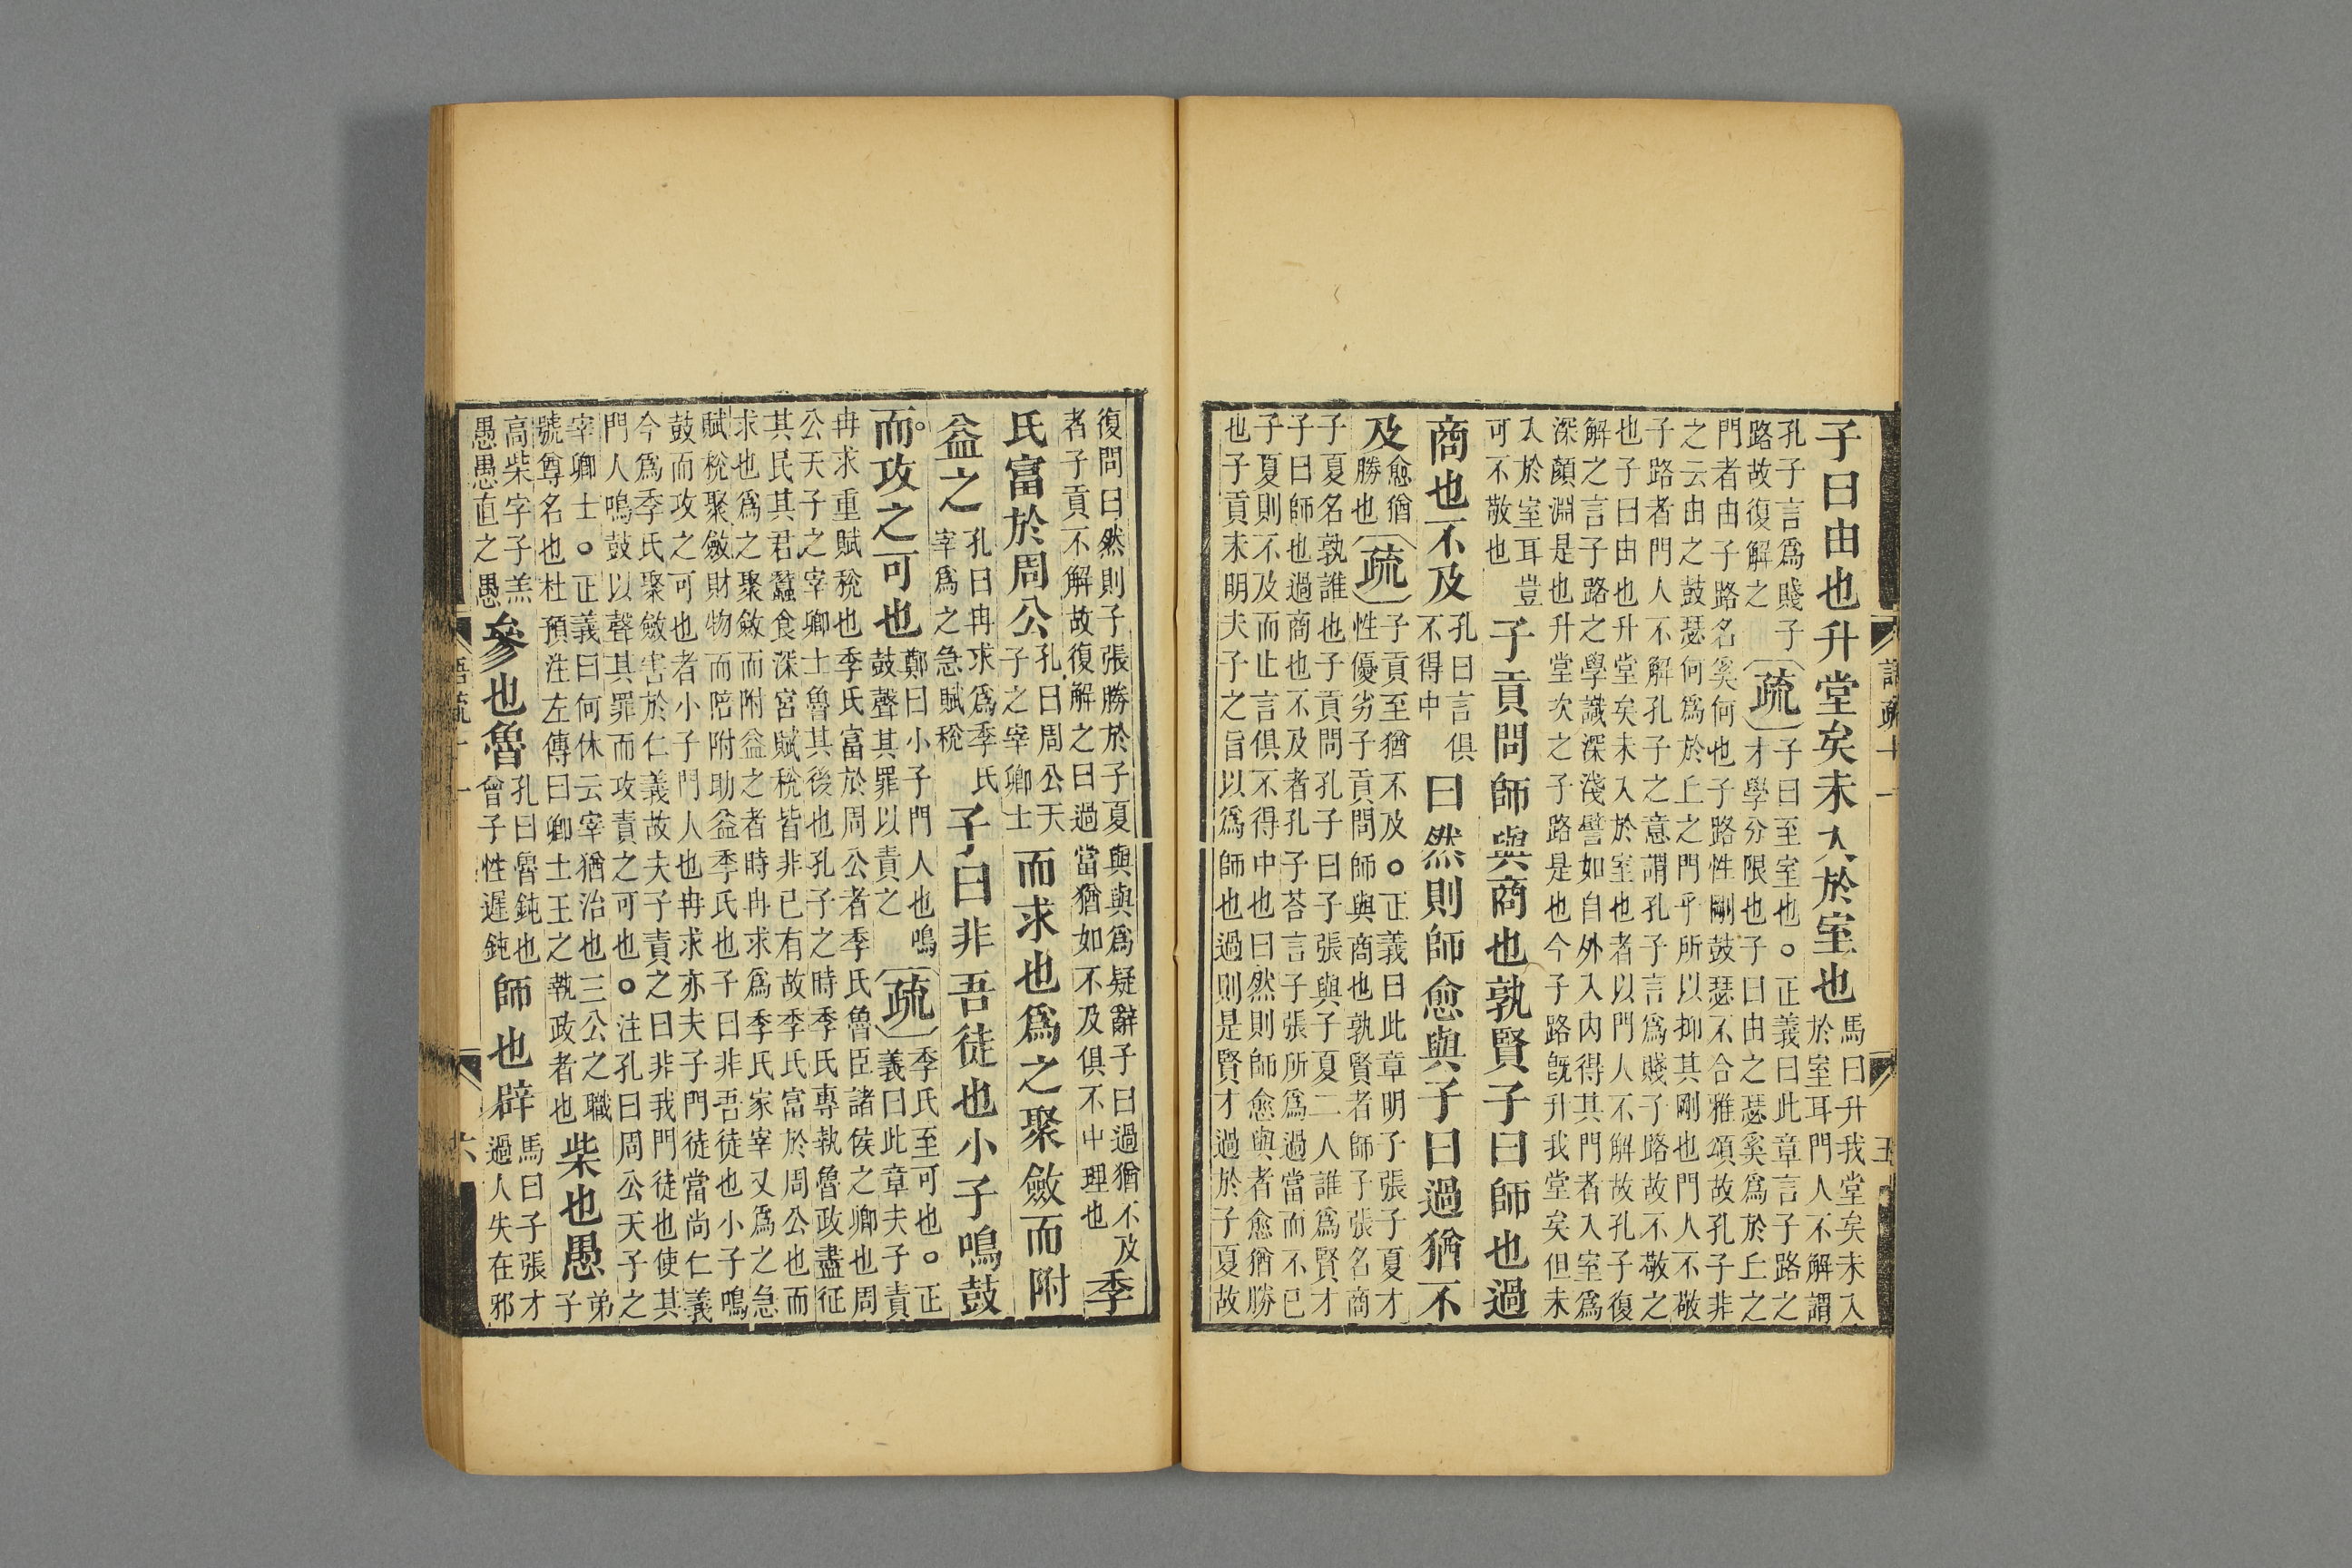 語疏十一 五
子曰由也升堂矣未入於室也
馬曰升我堂矣未入
於室耳門人不解謂
孔子言爲賤子
路故復解之
疏
子曰至室也○正義曰此章言子路之
才學分限也子曰由之瑟奚爲於丘之
門者由子路名奚何也子路性剛鼓瑟不合雅頌故孔子非
之云由之鼓瑟何爲於丘之門乎所以抑其剛也門人不敬
子路者門人不解孔子之意謂孔子言爲賤子路故不敬之
也子曰由也升堂矣未入於室也者以門人不解故孔子復
解之言子路之學識深淺譬如自外入內得其門者入室爲
深顏淵是也升堂次之子路是也今子路旣升我堂矣但未
入於室耳豈
可不敬也
子貢問師與商也孰賢子曰師也過
商也不及
孔曰言俱
不得中
曰然則師愈與子曰過猶不
及
愈猶
勝也
疏
子貢至猶不及○正義曰此章明子張子夏才
性優劣子貢問師與商也孰賢者師子張名商
子夏名孰誰也子貢問孔子曰子張與子夏二人誰爲賢才
子曰師也過商也不及者孔子荅言子張所爲過當而不已
子夏則不及而止言俱不得中也曰然則師愈與者愈猶勝
也子貢未明夫子之旨以爲師也過則是賢才過於子夏故
復問曰然則子張勝於子夏與與爲疑辭子曰過猶不及
者子貢不解故復解之曰過當猶如不及俱不中理也
季
氏富於周公
孔曰周公天
子之宰卿士
而求也爲之聚斂而附
益之
孔曰冉求爲季氏
宰爲之急賦稅
子曰非吾徒也小子鳴鼓
而攻之可也
鄭曰小子門人也鳴
鼓聲其罪以責之
疏
季氏至可也○正
義曰此章夫子責
冉求重賦稅也季氏富於周公者季氏魯臣諸侯之卿也周
公天子之宰卿士魯其後也孔子之時季氏專執魯政盡征
其民其君蠶食深宮賦稅皆非已有故季氏富於周公也而
求也爲之聚斂而附益之者時冉求爲季氏家宰又爲之急
賦稅聚斂財物而陪附助益季氏也子曰非吾徒也小子鳴
鼓而攻之可也者小子門人也冉求亦夫子門徒當尚仁義
今爲季氏聚斂害於仁義故夫子責之曰非我門徒也使其
門人鳴鼓以聲其罪而攻責之可也○注孔曰周公天子之
宰卿士○正義曰何休云宰猶治也三公之職
號尊名也杜預注左傳曰卿士王之執政者也
柴也愚
弟
子
高柴字子羔
愚愚直之愚
參也魯
孔曰魯鈍也
曾子性遲鈍
師也辟
馬曰子張才
過人失在邪
語疏十一 六